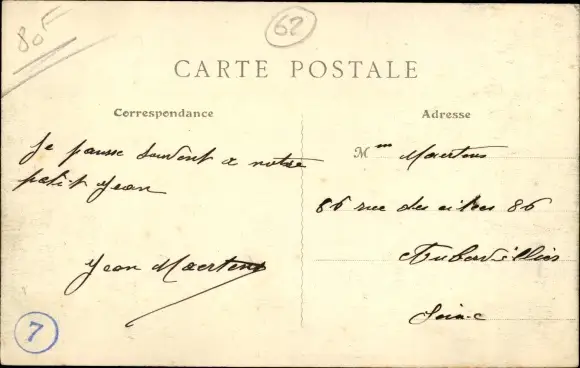 80F
62
CARTE POSTALE
Correspondance
Adresse
Je pausse souvent a notre
petit Jean
Jean Maertens
Mme Maertens
86 rue des cités 86
Aubervilliers
Seine
7